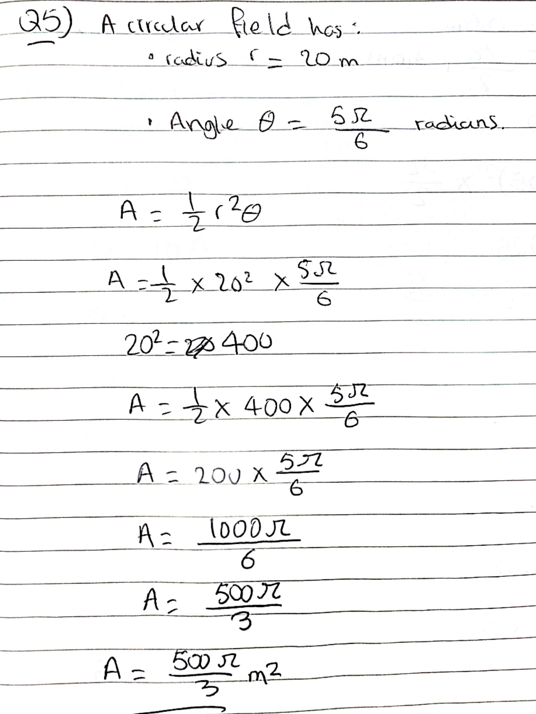 Q5) A circular field has:
• radius r = 20 m
• Angle θ = 5π/6 radians.
A = 1/2 r²θ
A = 1/2 × 20² × 5π/6
20² = 400
A = 1/2 × 400 × 5π/6
A = 200 × 5π/6
A = 1000π/6
A = 500π/3
A = 500π/3 m²